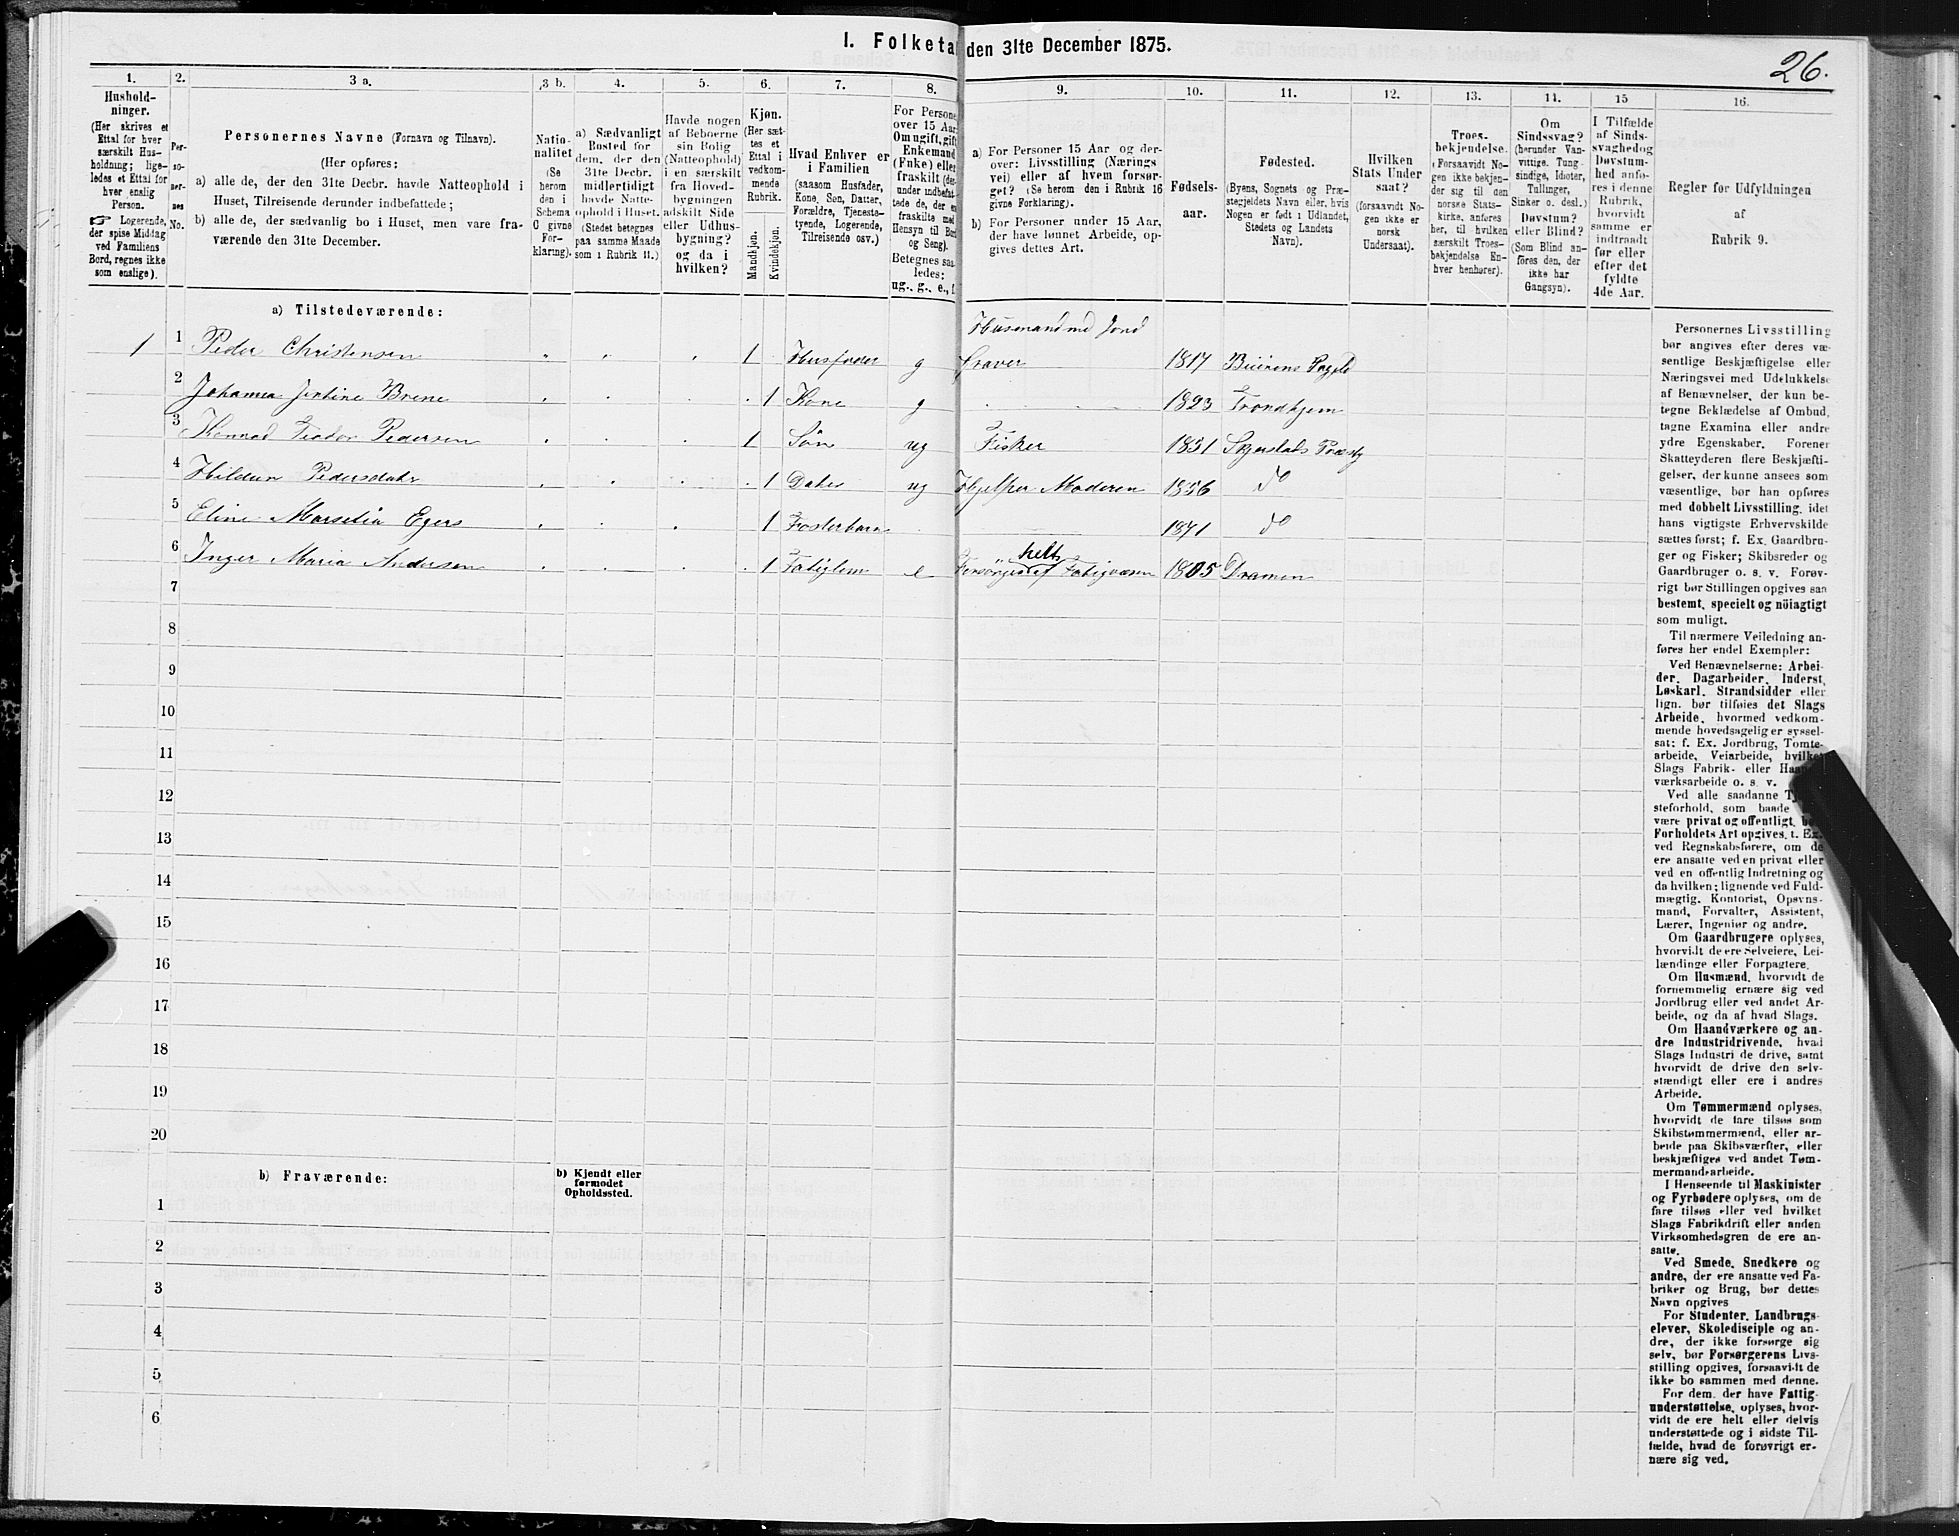 I. Folketa den 31te December 1875.
26.
1. 2. 3 a. 3 b. 4. 5. 6. 7. 8. 9. 10. 11. 12. 13. 14. 15 16.
Hushold-
ninger.
(Her skrives et
Ettal for hver
særskilt Hus-
holdning; lige-
ledes et Ettal for
hver enslig
Person.
☞ Logerende,
der spise Middag
ved Familiens
Bord, regnes ikke
som enslige).
Per-
so-
ner-
nes
No.
Personernes Navne (Fornavn og Tilnavn).
(Her opføres:
a) alle de, der den 31te Decbr. havde Natteophold i
Huset, Tilreisende derunder indbefattede;
b) alle de, der sædvanlig bo i Huset, men vare fra-
værende den 31te December.
Natio-
nalitet
(Se
herom
den i
Schema
C givne
For-
klaring).
a) Sædvanligt
Bosted for
dem, der den
31te Decbr.
midlertidigt
havde Natte-
ophold i Huset.
(Stedet betegnes
paa samme Maade
som i Rubrik 11.)
Havde nogen
af Beboerne
sin Bolig
(Natteophold)
i en særskilt
fra Hoved-
bygningen
adskilt Side
eller Udhus-
bygning?
og da i
hvilken?
Kjøn.
(Her sæt-
tes et
Ettal i
vedkom-
mende
Rubrik.
Mandkjøn.
Kvindekjøn.
Hvad Enhver er
i Familien
(saasom Husfader,
Kone, Søn, Datter,
Forældre, Tjeneste-
tyende, Logerende,
Tilreisende osv.)
For Persone
over 15 Aar
Om ugift, gift
Enkemand
(Enke) eller
fraskilt (der-
under indbefat-
tede de, der e
fraskilte med
Hensyn til Bord
og Seng).
Betegnes saa-
ledes:
ug., g., e., f.
a) For Personer 15 Aar og der-
over: Livsstilling (Nærings
vei) eller af hvem forsør-
get? (Se herom den i Rubrik 16
givne Forklaring).
b) For Personer under 15 Aar,
der have lønnet Arbeide, op-
gives dettes Art.
Fødsels-
aar.
Fødested.
(Byens, Sognets og Præ-
stegjeldets Navn eller, hvis
Nogen er født i Udlandet,
Stedets og Landets
Navn).
Hvilken
Stats Under
saat?
(forsaavidt No-
gen ikke er
norsk
Undersaat).
Troes-
bekjendelse.
(Forsaavidt No-
gen ikke bekjen-
der sig til den
norske Stats-
kirke, anføres
her, til hvilken
særskilt Troes-
bekjendelse En-
hver henhører).
Om
Sindssvag?
(herunder Van-
vittige, Tung-
sindige, Idioter,
Tullinger,
Sinker o. desl.)
Døvstum?
eller Blind?
(Som Blind an-
føres den, der
ikke har
Gangsyn).
I Tilfælde
af Sinds-
svaghed og
Døvstum-
hed anfø-
res i denne
Rubrik,
hvorvidt
samme er
indtraadt
før eller
efter det
fyldte
4de Aar.
Regler for Udfyldningen
af
Rubrik 9.
a) Tilstedeværende:
Husmand md Jord
1 1 Peder Christensen " " " 1 Husfader g Graver 1817
2 Johanna Jentine Brene 1 Kone g 1823 Trondhjem
3 Konrad Teodor Pedersen 1 Søn ug Fisker 1851
4 Pedersdatr 1 Dater ug Hjelper Moderen 1856 do
5 Eline Marselia Egers 1 Fosterbarn 1871 do
helt
6 Inger Maria Andersen 1 Fatiglem e Forsørges af Fatigvæsen 1805 Dramen
7
8
9
10
11
12
13
14
15
16
17
18
19
20
b) Fraværende:
b) Kjendt eller
formodet
Opholdssted.
1
2
3
4
5
6
Personernes Livsstilling
bør angives efter deres væ-
sentlige Beskjæftigelse eller
Næringsvei med Udelukkelse
af Benævnelser, der kun be-
tegne Beklædelse af Ombud,
tagne Examina eller andre
ydre Egenskaber. Forener
Skatteyderen flere Beskjæfti-
gelser, der kunne ansees som
væsentlige, bør han opføres
med dobbelt Livsstilling, idet
hans vigtigste Erhvervskilde
sættes først; f. Ex. Gaardbru-
ger og Fisker; Skibsreder og
Gaardbruger o. s. v. Forøv-
rigt bør Stillingen opgives saa
bestemt, specielt og nöiagtigt
som muligt.
Til nærmere Veiledning an-
føres her endel Exempler:
Ved Benævnelserne: Arbei-
der, Dagarbeider, Inderst,
Løskarl, Strandsidder eller
lign. bør tilføies det Slags
Arbeide, hvormed vedkom-
mende hovedsagelig er syssel-
sat: f. Ex. Jordbrug, Tomte-
arbeide, Veiarbeide, hvilket
Slags Fabrik- eller Haand-
værksarbeide o. s. v.
Ved alle saadanne
steforhold, som baade
være privat og offentligt,
Forholdets Art opgives, t. Ex.
ved Regnskabsførere, om de
ere ansatte ved en privat eller
ved en offentlig Indretning og
da hvilken; lignende ved Fuld-
mægtig, Kontorist, Opsyns-
mand, Forvalter, Assistent,
Lærer, Ingeniør og andre.
Om Gaardbrugere oplyses,
hvorvidt de ere Selveiere, Lei-
lændinge eller Forpagtere.
Om Husmænd, hvorvidt de
fornemmelig ernære sig ved
Jordbrug eller ved andet Ar-
beide, og da af hvad Slags.
Om Haandværkere og an-
dre Industridrivende, hvad
Slags Industri de drive, samt
hvorvidt de drive den selv-
stændigt eller ere i andres
Arbeide.
Om Tømmermænd oplyses,
hvorvidt de fare tilsøs som
Skibstømmermænd, eller ar-
beide paa Skibsværfter, eller
beskjæftiges ved andet Tøm-
mermandsarbeide.
I Henseende til Maskinister
og Fyrbødere oplyses, om de
fare tilsøs eller ved hvilket
Slags Fabrikdrift eller anden
Virksomhedsgren de ere an-
satte.
Ved Smede, Snedkere og
andre, der ere ansatte ved Fa-
briker og Brug, bør dettes
Navn opgives
For Studenter, Landbrugs-
elever, Skoledisciple og an-
dre, der ikke forsørge sig
selv, bør Forsørgerens Livs-
stilling opgives, forsaavidt de
ikke bo sammen med denne.
For dem, der have Fattig-
understøttelse, oplyses, hvor-
vidt de ere helt eller delvis
understøttede og i sidste Til-
fælde, hvad de forøvrigt er-
nære sig ved.